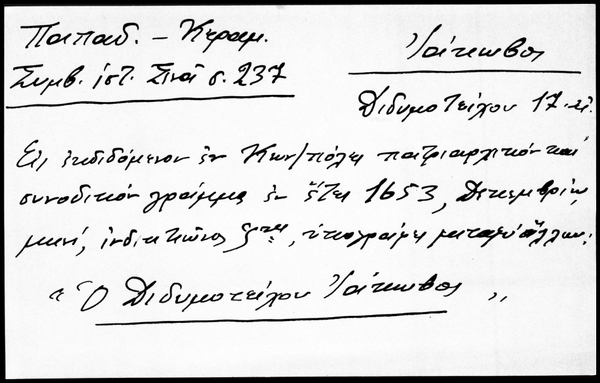 Παπαδ. – Κεραμ.
Συμβ. ἱστ. Σινᾶ σ. 237
Ἰάκωβος
Διδυμοτείχου 17. αἰ.
Εἰς ἐκδιδόμενον ἐν Κων/πόλει πατριαρχικὸν καὶ
συνοδικὸν γράμμα ἐν ἔτει 1653, Δεκεμβρίῳ
μηνί, ἰνδικτιῶνος ζης, ὑπογράφει μεταξὺ ἄλλων:
« Ὁ Διδυμοτείχου Ἰάκωβος »